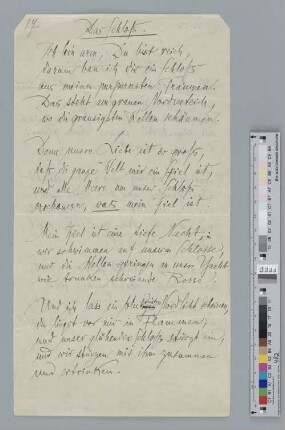 17.
Das Schloß.
Ich bin arm, Du bist reich,
darum bau ich dir ein Schloß
aus meinen Träumen.
Das steht am grauen
wo die grausigsten Wellen schäumen.
Denn unsre Liebe ist so groß,
daß die ganze Welt nur ein Spiel ist,
und alle Meere um unser Schloß
erschauern, was mein Spiel ist.
Mein Spiel ist eine tiefe Nacht,
wir schwimmen mit unserm Schlosse,
und die Wellen springen um unsre Yacht
wie trunken schreiende Rosse.
Und ich lass ein Nordlicht scheinen,
du liegst vor mir in Flammen,
und unser glühendes Schloß stürzt ein,
und wir stürzen mit ihm zusammen
und ertrinken.